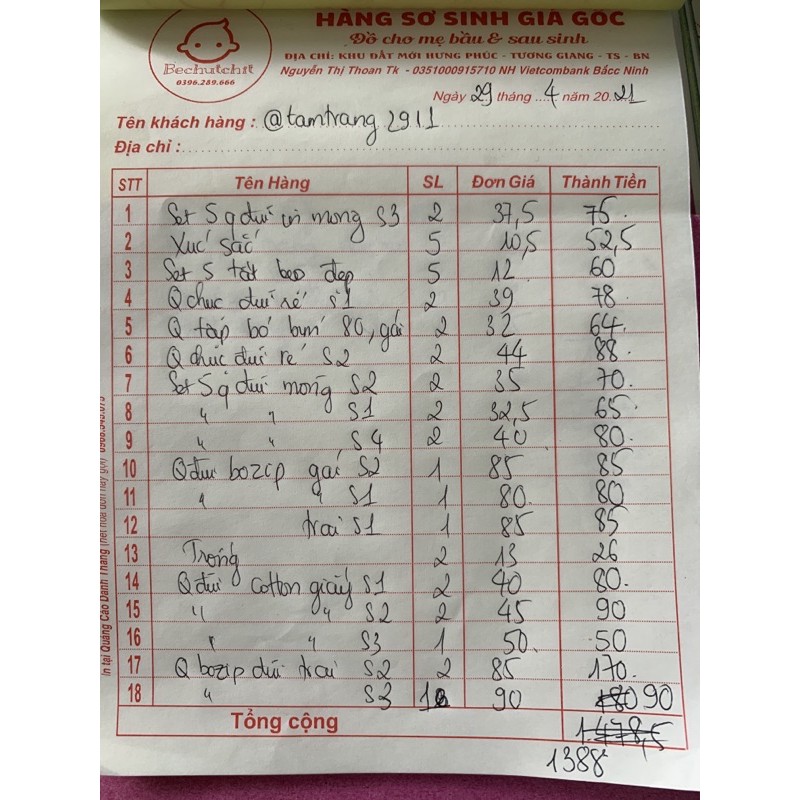 HÀNG SƠ SINH GIÁ GỐC
Đồ cho mẹ bầu & sau sinh
Bechutchit
0396.289.666
ĐỊA CHỈ: KHU ĐẤT MỚI HƯNG PHÚC - TƯƠNG GIANG - TS - BN
Nguyễn Thị Thoan Tk - 0351000915710 NH Vietcombank Bắcc Ninh
Ngày 29 tháng 4 năm 2021
Tên khách hàng : @tamtrang2911
Địa chỉ :
STT Tên Hàng SL Đơn Giá Thành Tiền
1 Set 5 q đùi in mong S3 2 37,5 75
2 Xúc sắc 5 10,5 52,5
3 Set 5 tất beo đẹp 5 12 60
4 Q chuc đùi rẻ S1 2 39 78
5 Q tập bó bụm 80, gái 2 32 64
6 Q chuc đùi rẻ S2 2 44 88
7 Set 5 q đùi mong S2 2 35 70
8 " " S1 2 32,5 65
9 " " S4 2 40 80
10 Q đùi bozip gái S2 1 85 85
11 " " S1 1 80 80
12 trai S1 1 85 85
13 Trống 2 13 26
14 Q đùi cotton giấy S1 2 40 80
15 " " S2 2 45 90
16 " " S3 1 50 50
17 Q bozip đùi trai S2 2 85 170
18 " S3 1 90 180 90
Tổng cộng 1.478,5
1388
in tại Quảng Cáo Danh Thắng